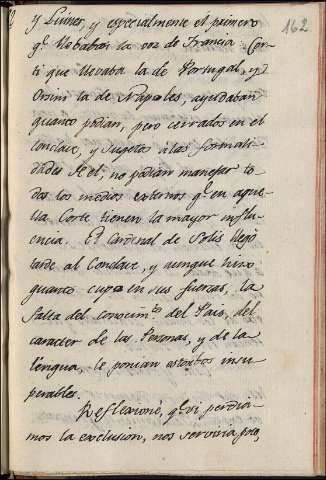 162
y Luines, y especialmente el primero
q.e llebaban la voz de Francia: Cor-
ti que llevaba la de Portugal, y
Orsini la de Napoles, ayudaban
quanto podian, pero cerrados en el
Conclave, y sugetos á las formali-
dades de el, no podian manejar to-
dos los medios externos q.e en aque-
lla Corte tienen la mayor influ-
encia. El Cardenal de Solis llegó
tarde al Conclave, y aunque hizo
quanto cupo en sus fuerzas, la
falta del conocim.to del Pais, del
caracter de las Personas, y de la
lengua, le ponian estorbos insu-
perables.
Reflexioné, q.e si perdia-
mos la exclusion, nos serviria poco,